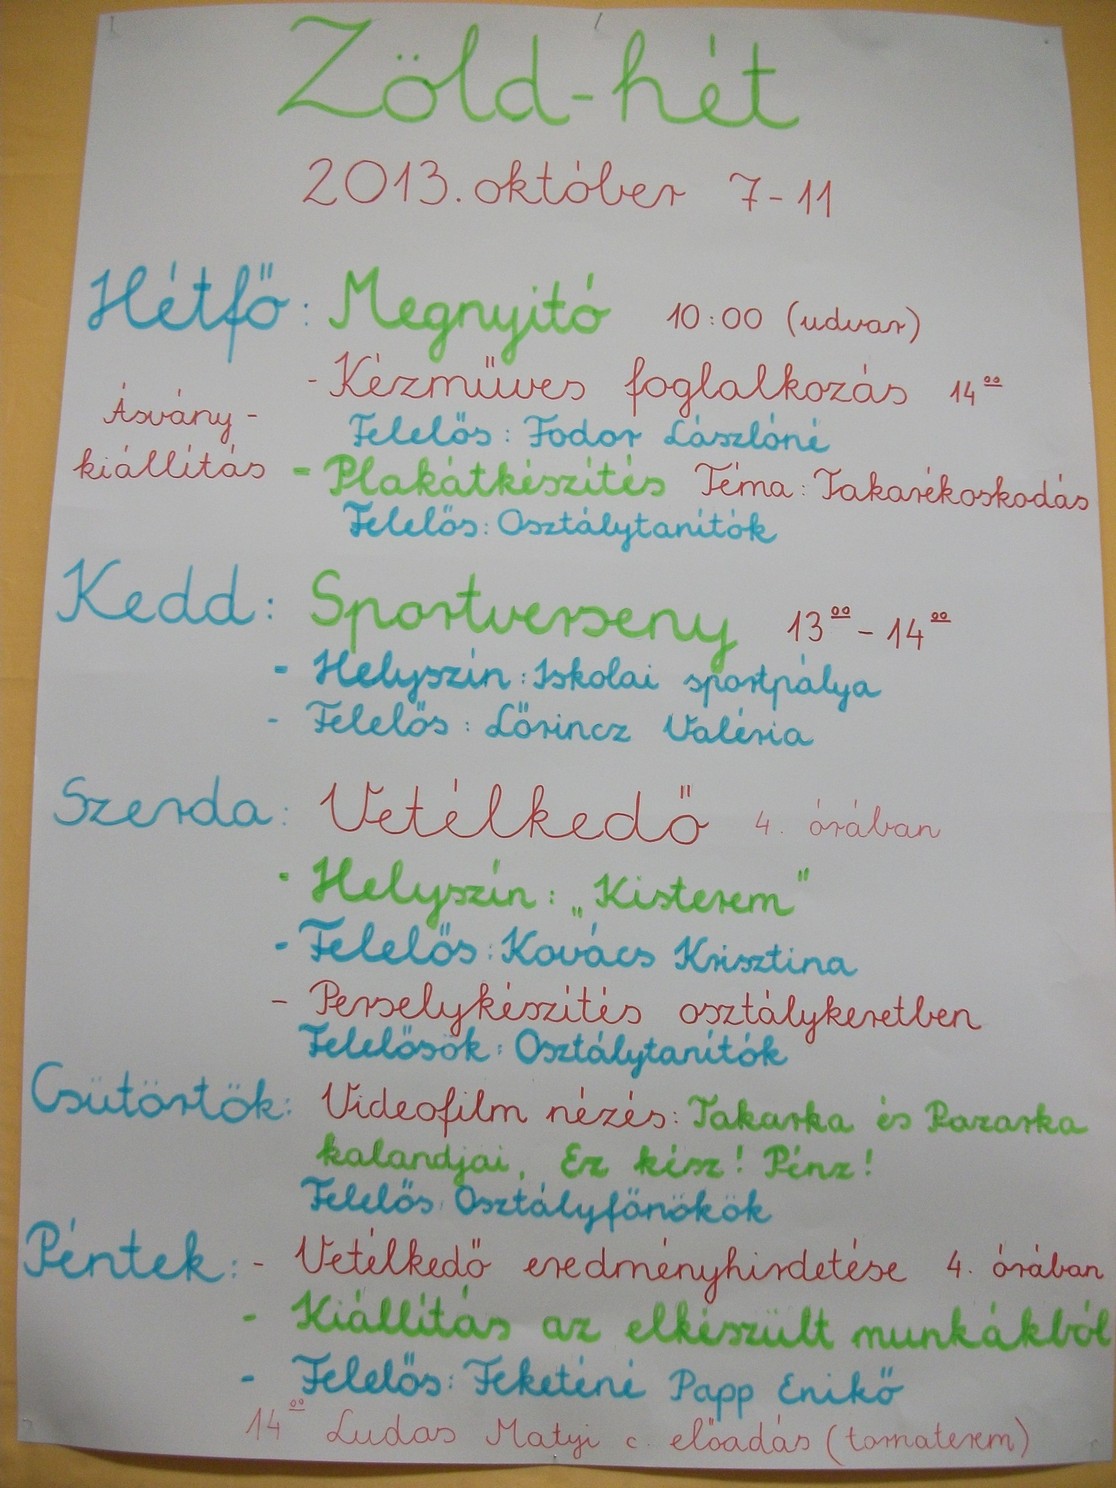 Zöld-hét
2013. október 7-11
Hétfő: Megnyitó 10:00 (udvar)
- Kézműves foglalkozás 14⁰⁰
Ásvány-
kiállítás
Felelős: Fodor Lászlóné
- Plakátkészítés Téma: Takarékoskodás
Felelős: Osztálytanítók
Kedd: Sportverseny 13⁰⁰ - 14⁰⁰
- Helyszín: Iskolai sportpálya
- Felelős: Lőrincz Valéria
Szerda: Vetélkedő 4. órában
- Helyszín: „Kisterem"
- Felelős: Kovács Krisztina
- Perselykészítés osztálykeretben
Felelősök: Osztálytanítók
Csütörtök: Videofilm nézés: Takarka és Pazarka
kalandjai, Ez kész! Pénz!
Felelős: Osztályfőnökök
Péntek: - Vetélkedő eredményhirdetése 4. órában
- Kiállítás az elkészült munkákból
- Felelős: Feketéné Papp Enikő
14⁰⁰ Ludas Matyi c. előadás (tornaterem)